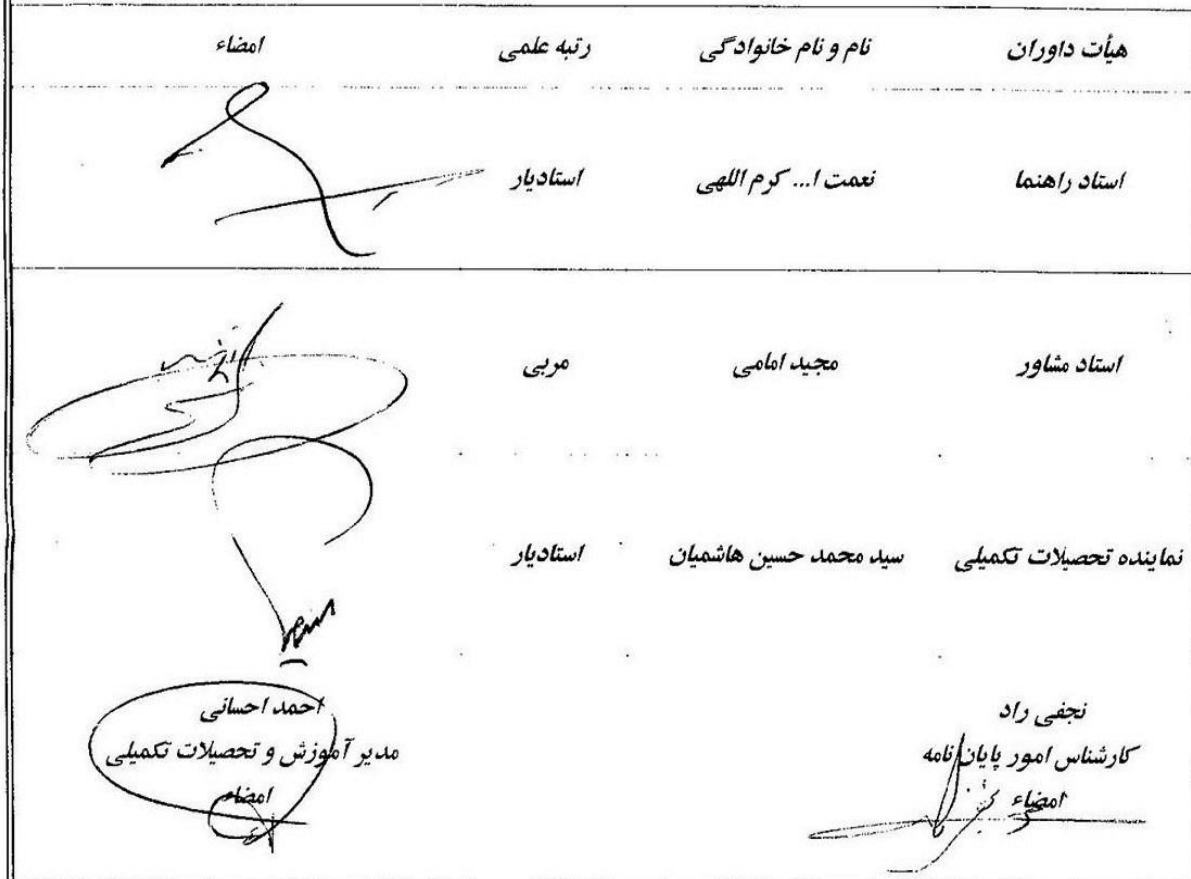 هیأت داوران نام و نام خانوادگی رتبه علمی امضاء
استاد راهنما نعمت ا... کرم اللهی استادیار
استاد مشاور مجید امامی مربی
نماینده تحصیلات تکمیلی سید محمد حسین هاشمیان استادیار
نجفی راد
کارشناس امور پایان نامه
امضاء
احمد احسانی
مدیر آموزش و تحصیلات تکمیلی
امضاء